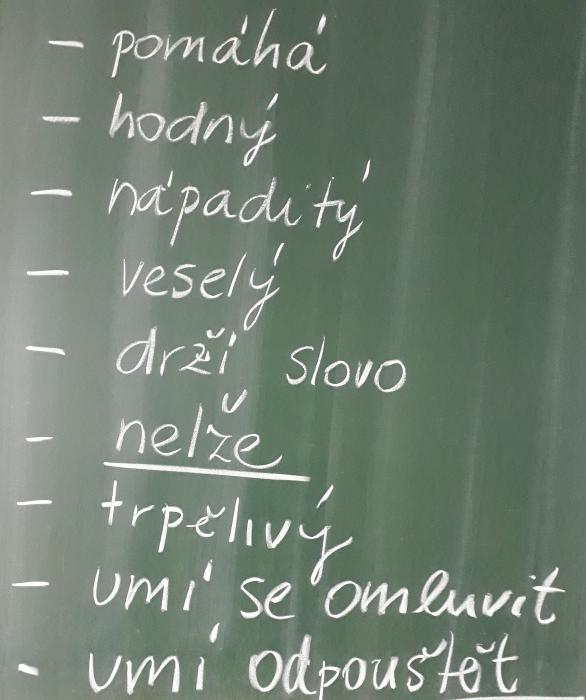 - pomáhá
- hodný
- nápaditý
- veselý
- drží slovo
- nelže
- trpělivý
- umí se omluvit
- umí odpouštět